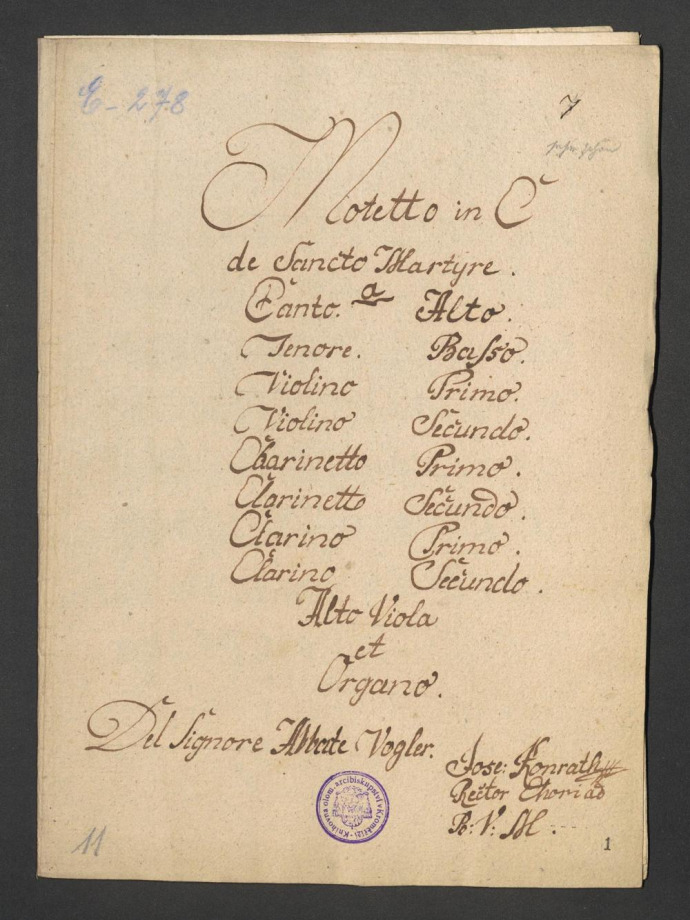 E-278
7
sehr schön
Motetto in C
de Sancto Martyre.
a
Canto. Alto.
Tenore. Basso.
Violino Primo.
Violino Secundo.
Clarinetto Primo.
Clarinetto Secundo.
Clarino Primo.
Clarino Secundo.
Alto Viola
et
Organo.
Del Signore Abbate Vogler.
Jose: Konrath
Rector Chori ad
B: V: M.
Knihovna olom. arcibiskupství v Kroměříži
11
1